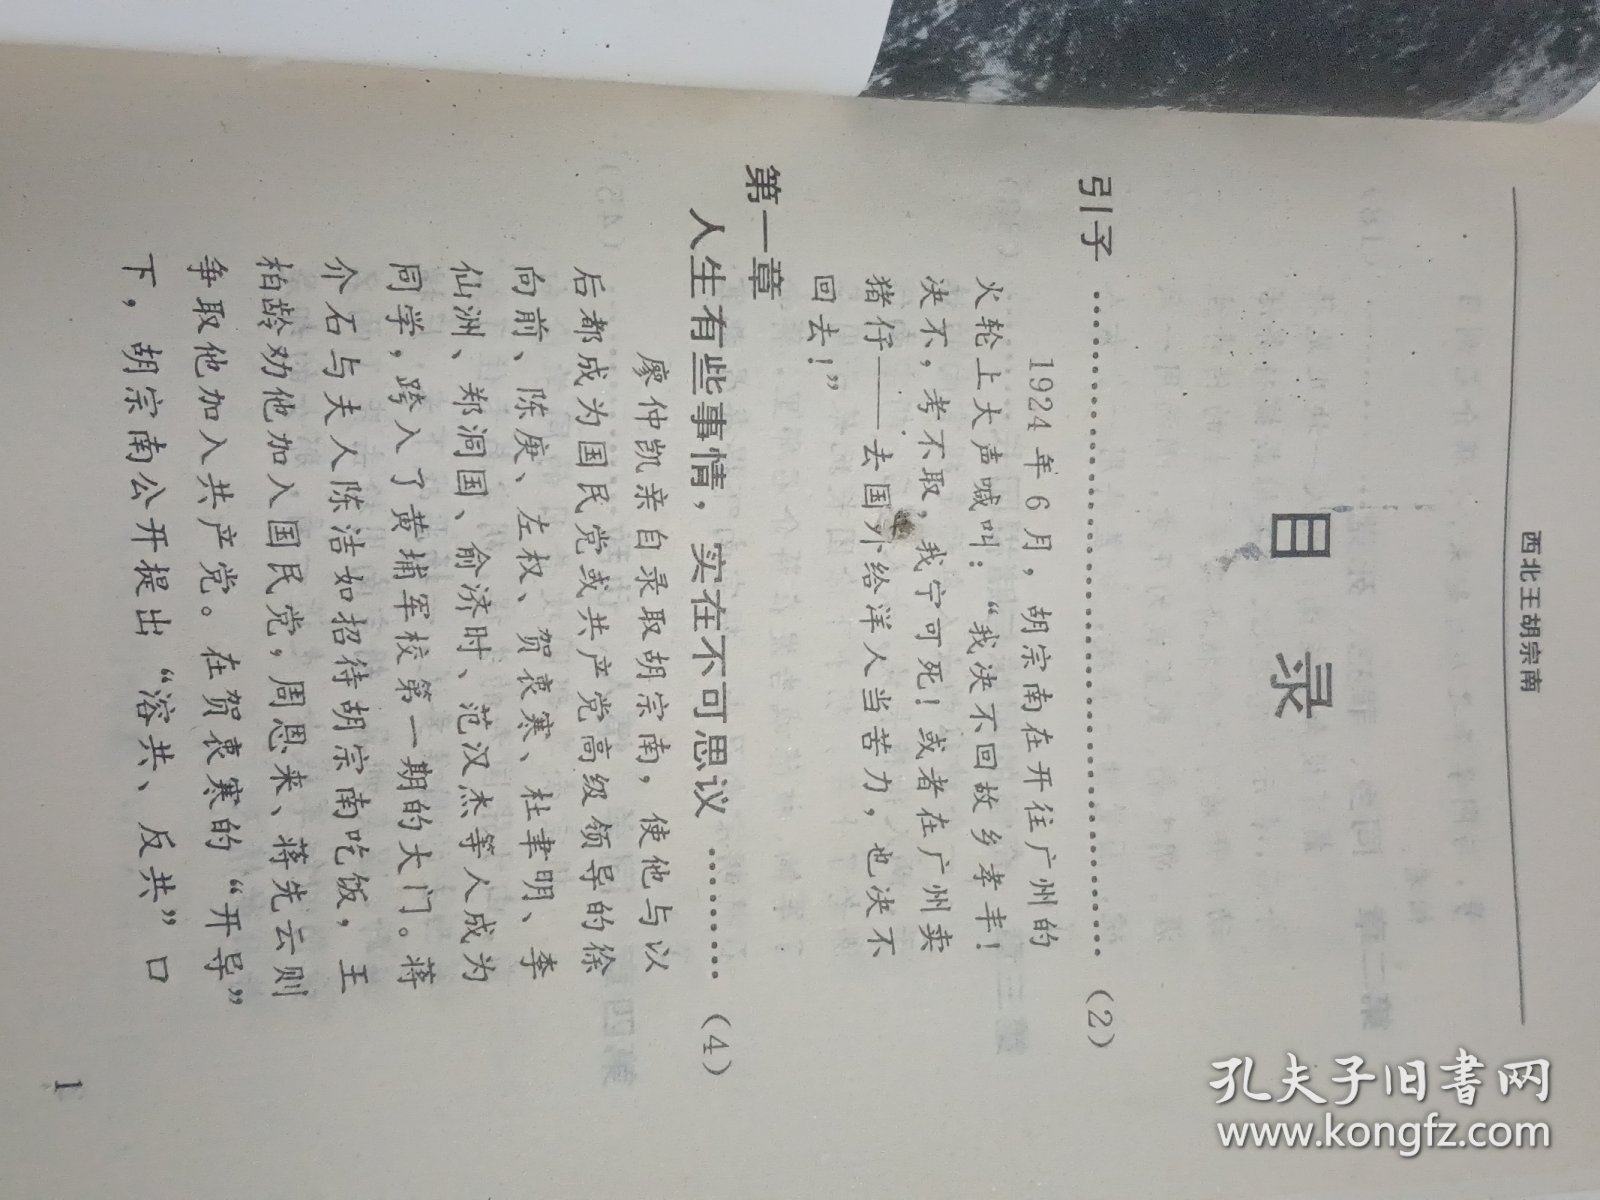 西北王胡宗南
目 录
引子 ……………………………………… (2)
1924年6月，胡宗南在开往广州的
火轮上大声喊叫：“我决不回故乡孝丰！
决不，考不取，我宁可死！或者在广州卖
猪仔——去国外给洋人当苦力，也决不
回去！”
第一章
人生有些事情，实在不可思议 ………… (4)
廖仲凯亲自录取胡宗南，使他与以
后都成为国民党或共产党高级领导的徐
向前、陈赓、左权、贺衷寒、杜聿明、李
仙洲、郑洞国、俞济时、范汉杰等人成为
同学，跨入了黄埔军校第一期的大门。蒋
介石与夫人陈洁如招待胡宗南吃饭，王
柏龄劝他加入国民党，周恩来、蒋先云则
争取他加入共产党。在贺衷寒的“开导”
下，胡宗南公开提出“溶共、反共”口
1
孔夫子旧书网
www.kongfz.com